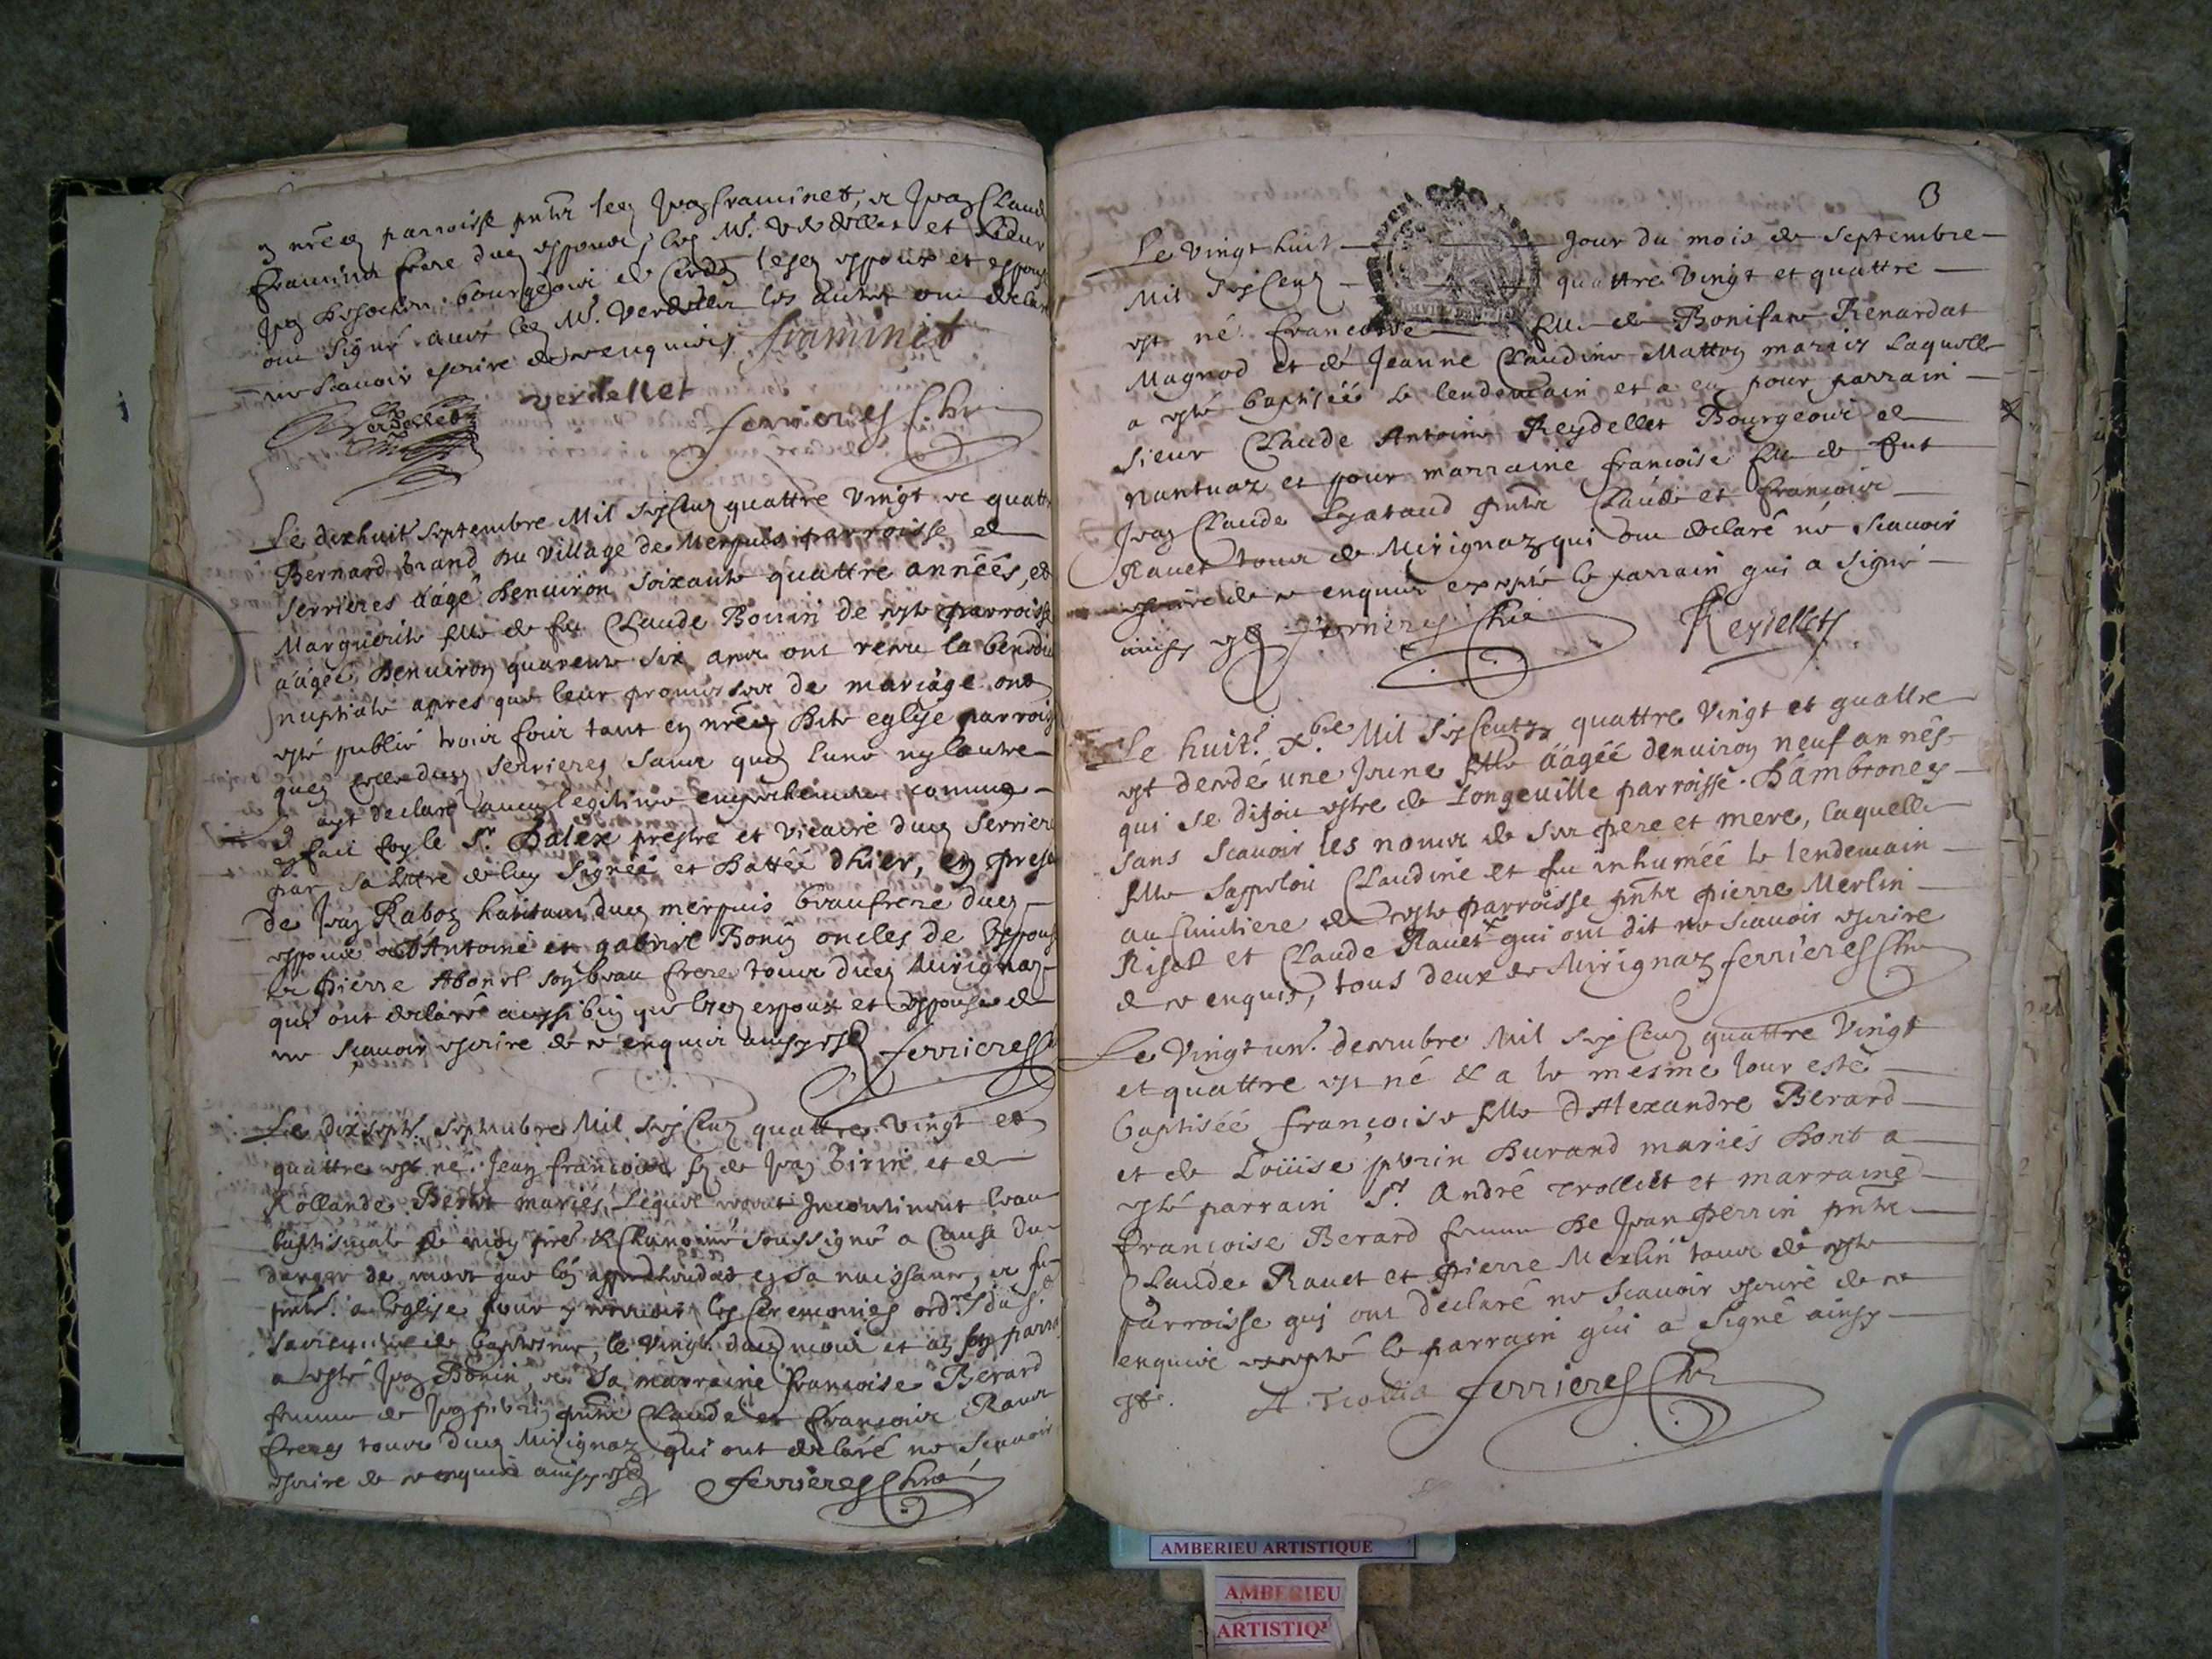 parroisse pnts Jean framinet, et Jean Claude
framinet frere dud espoux, led Mr. Verdellet et
bourgeois de Cerdon lesd espoux et espouse
ont signé avec led Mr. Verdellet les autres ont declaré
ne scavoir escrire de ce enquis framinet
verdellet
Verdellet
ferrieres Chne
Le dixhuit septembre Mil six Cens quattre Vingt et quattre
Bernard brand du village de Merpuis parroisse de
Serrieres aagé denuiron soixante quattre années, et
Marguerite fille de feu Claude Bonin de ceste parroisse
aagée denuiron quarente six ans ont receu la benedic
nuptiale apres que leur promesses de mariage ont
esté publié trois fois tant en nred dite eglise parrois
quen celle dud Serrieres sans que lune ny lautre
ayt declaré aucun legitime empechement comme
fait foy le Sr. Balex prestre et vicaire dud Serrieres
par sa lettre de luy signée et dattée dhier, en prese
de Jean Rabon habitant dud merpuis beaufrere dud
espoux d'Antoine et gabriel Bonin oncles de lespouse
et pierre Abonel son beau frere tous dud Mirignaz
qui ont declaré aussi bien que lesd espoux et espouse de
ne scavoir escrire de ce enquis ainsy est ferrieres
Le dixsept. septembre Mil six Cens quattre Vingt et
quattre est né Jean francois fils de Jean et de
Rollande mariés, Lequel receut Incontinent leau
baptismale de moy Chanoine soussigné a Cause du
danger de mort que lon apprehendat en sa naissance, et fut
pnté a leglise pour y recevoir les ceremonies ordres du St
sacrement de baptesme, le vingt dud mois et a eu pour parrain
a esté Jean Bonin, et sa marraine francoise Berard
femme de Jean perrin pnts Claude et francois Rauet
freres tous dud Mirignaz qui ont declaré ne scavoir
escrire de ce enquis ainsy est ferrieres Chne
3
Le Vingt huit Jour du mois de Septembre
Mil six Cens quattre Vingt et quattre
est né francoise fille de Boniface Renardat
Magnod et de Jeanne Claudine Matton mariés Laquelle
a esté baptisée le lendemain et a eu pour parrain
sieur Claude Antoine Reydellet Bourgeois de
Nantuaz et pour marraine francoise fille de fut
Jean Claude pnts Claude et francois
Rauet tous de Mirignaz qui ont declaré ne scavoir
escrire de ce enquis excepté le parrain qui a signé
ainsy est ferrieres Chne Reydellet
Le huit. xbre. Mil six Centz quattre Vingt et quattre
est decedé une Jeune fille aagée denuiron neuf années
qui se disoit estre de Longeuille parroisse D'ambroney
sans scavoir les noms de ses pere et mere, laquelle
fille sappeloit Claudine et fu inhumée le lendemain
au Cimitiere de ceste parroisse pnts pierre Merlin
et Claude Rauet qui ont dit ne scavoir escrire
de ce enquis, tous deux de Mirignaz ferrieres Chne
Le Vingt un. decembre Mil six Cens quattre Vingt
et quattre est né & a le mesme Jour esté
baptisée françoise fille d'Alexandre Berard
et de Loüise perrin Durand mariés dont a
esté parrain Sr. André Trolliet et marraine
francoise Berard femme de Jean perrin pnts
Claude Rauet et pierre Merlin tous de ceste
parroisse qui ont declaré ne scavoir escrire de ce
enquis excepté le parrain qui a signé ainsy
est. A. Trollia ferrieres Chne
AMBERIEU ARTISTIQUE
AMBERIEU
ARTISTIQ